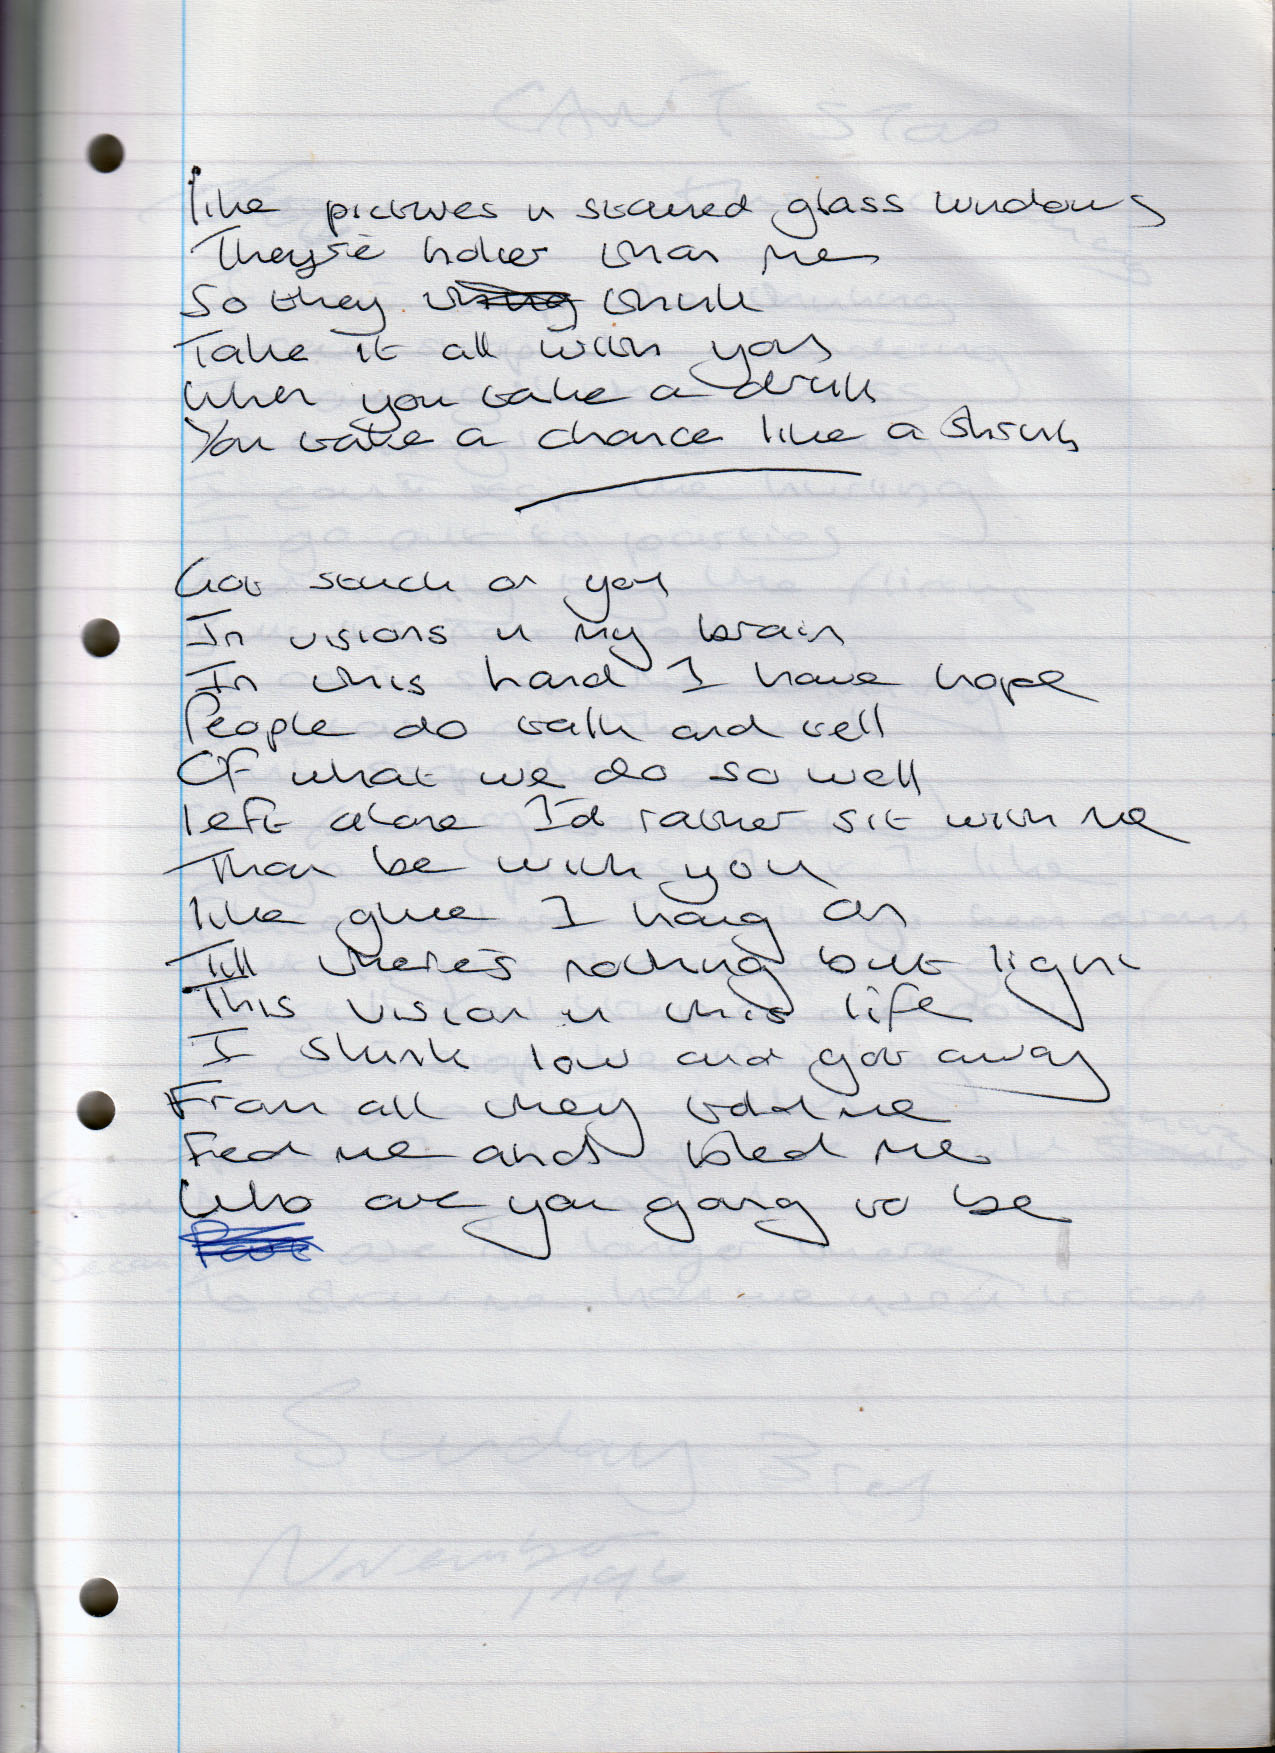 like pictures in stained glass windows
They're holier than me
So they think
Take it all with you
When you take a drink
You take a chance like a shrink
Got stuck on you
In visions in my brain
In this hand I have hope
People do talk and tell
Of what we do so well
left alone I'd rather sit with me
Than be with you
like glue I hang on
Till there's nothing but light
This vision in this life
I slunk low and got away
From all they told me
Fed me and bled me
Who are you going to be